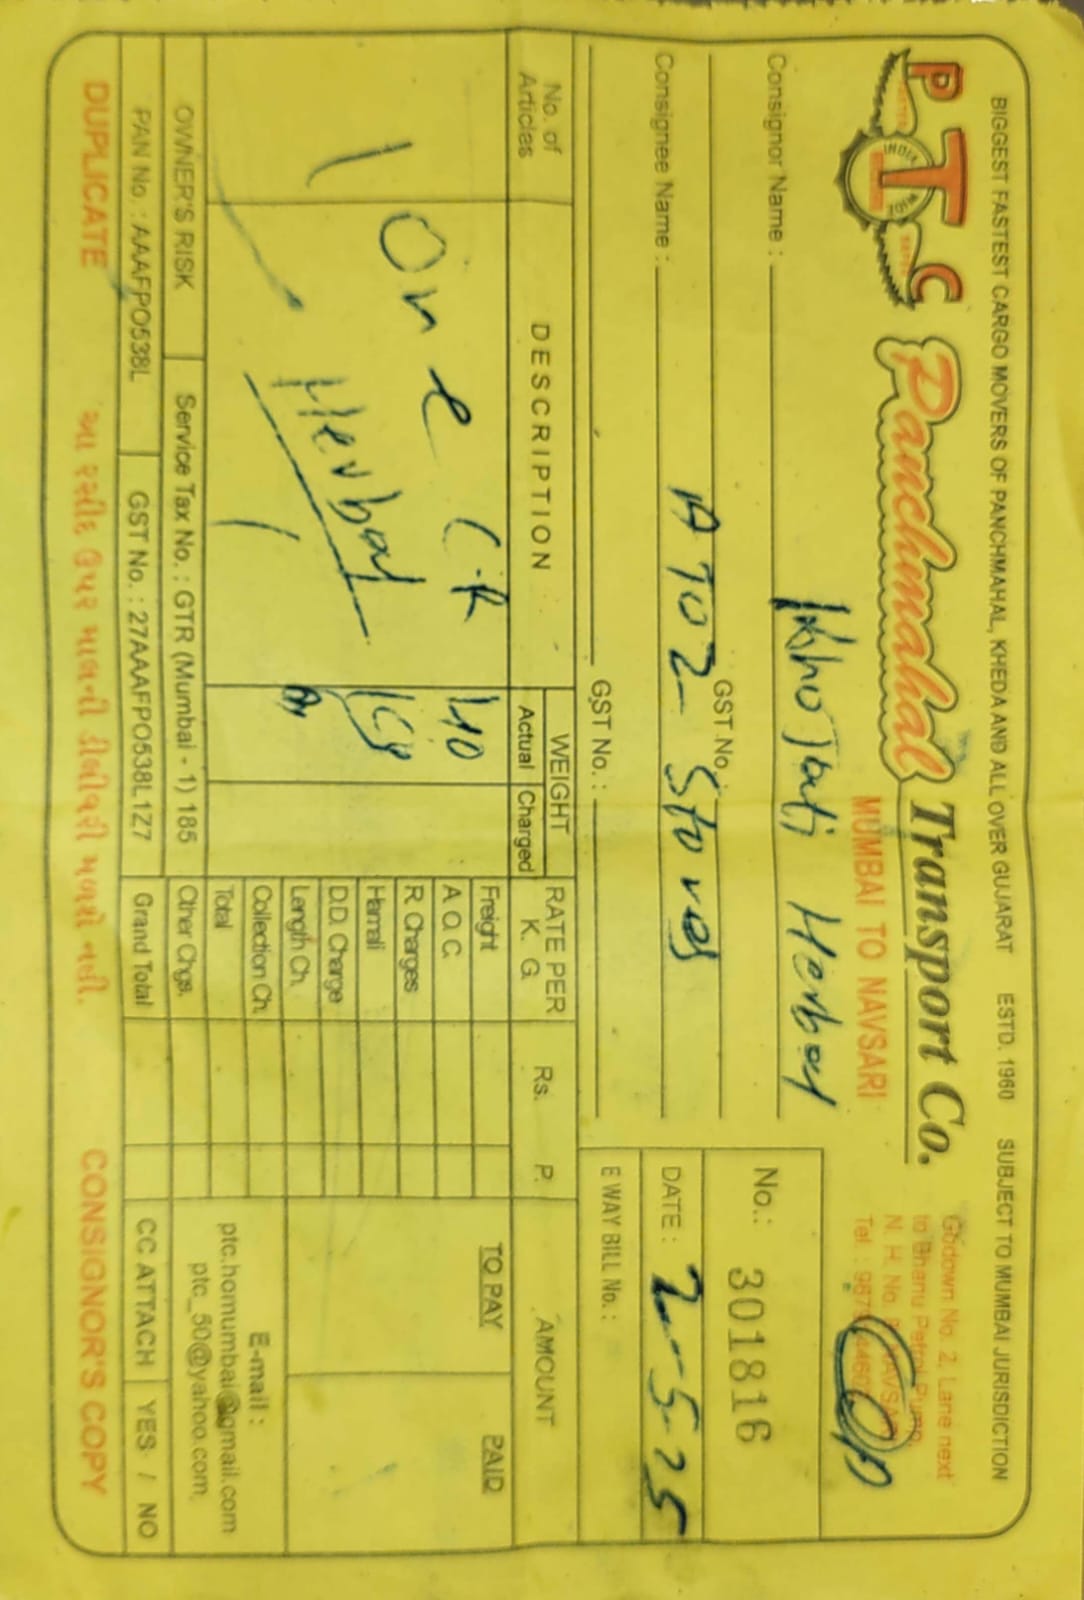 BIGGEST FASTEST CARGO MOVERS OF PANCHMAHAL, KHEDA AND ALL OVER GUJARAT ESTD. 1960 SUBJECT TO MUMBAI JURISDICTION
PTC Panchmahal Transport Co.
MUMBAI TO NAVSARI
Godown No. 2, Lane next
to Bhanu Petrol Pump,
N. H. No. NAVSARI
Tel. :
Consignor Name : Herbal
GST No.
Consignee Name : A TO Z Stores
GST No. :
No.: 301816
DATE : 2-5-25
E WAY BILL No. :
No. of Articles
DESCRIPTION
WEIGHT
Actual Charged
RATE PER K. G.
Rs. P.
AMOUNT
1
One
Herbal
Freight
A. O. C.
R. Charges
Hamali
D.D. Charge
Length Ch.
Collection Ch.
Total
Other Chgs.
Grand Total
TO PAY PAID
E-mail :
ptc.homumbai@gmail.com
ptc_50@yahoo.com
OWNER'S RISK Service Tax No. : GTR (Mumbai - 1) 185
PAN No. : AAAFPO538L GST No. : 27AAAFPO538L1Z7
CC ATTACH YES / NO
DUPLICATE આ રસીદ ઉપર માલની ડીલીવરી મળશે નહી. CONSIGNOR'S COPY